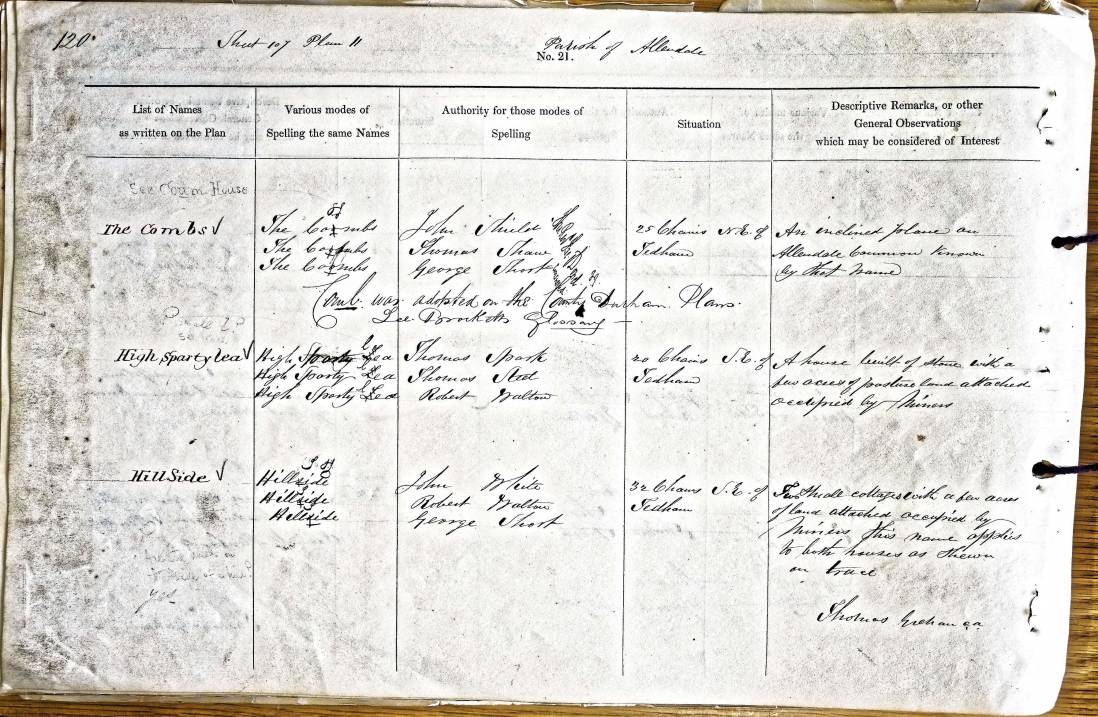 120
Sheet 107 Plan 11
Parish of Allendale
No. 21.
List of Names
as written on the Plan
Various modes of
Spelling the same Names
Authority for those modes of
Spelling
Situation
Descriptive Remarks, or other
General Observations
which may be considered of Interest
See Town House
The Combs √
The Coombs
The Coombs
The Coombs
John Shield
Thomas Shaw
George Short
25 Chains N.E. of
Tedham
An inclined plane on
Allendale Common Known
by that name
Comb was adopted on the County Durham Plans
See Brocketts Glossary —
High Sparty lea √
High Sparty Lea
High Sparty Lea
High Sparty Lea
Thomas Spark
Thomas Steel
Robert Walton
20 Chains S.E. of
Tedham
A house built of stone with a
few acres of pasture land attached
occupied by Miners
Hill Side √
Hillside
Hillside
Hillside
John White
Robert Walton
George Short
32 Chains S.E. of
Tedham
Two small cottages with a few acres
of land attached occupied by
Miners this name applies
to both houses as shewn
on trace
yes
Thomas